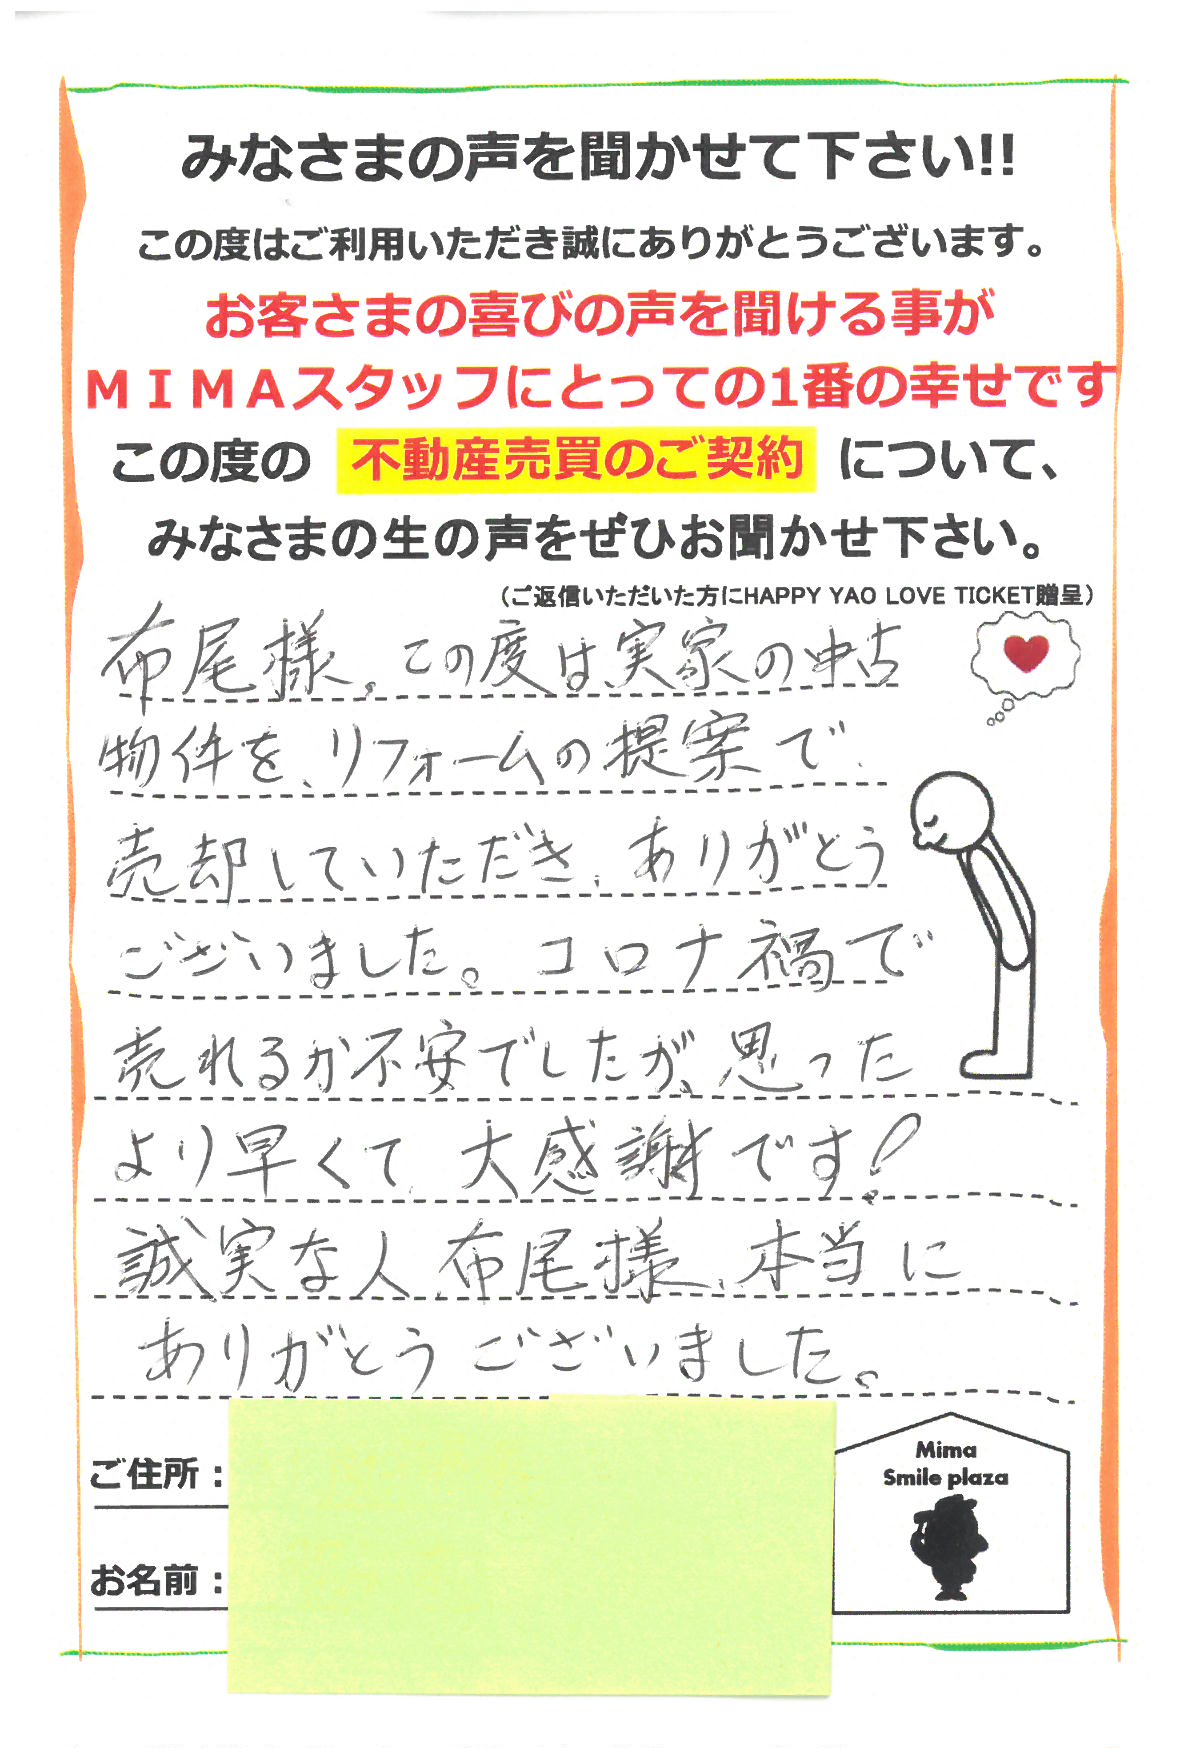 みなさまの声を聞かせて下さい!!
この度はご利用いただき誠にありがとうございます。
お客さまの喜びの声を聞ける事が
ＭＩＭＡスタッフにとっての1番の幸せです
この度の 不動産売買のご契約 について、
みなさまの生の声をぜひお聞かせ下さい。
（ご返信いただいた方にHAPPY YAO LOVE TICKET贈呈）
布尾様、この度は実家の中古
物件を、リフォームの提案で
売却していただき、ありがとう
ございました。コロナ禍で
売れるか不安でしたが、思った
より早くて、大感謝です!
誠実な人 布尾様、本当に
ありがとうございました。
ご住所：
お名前：
Mima
Smile plaza